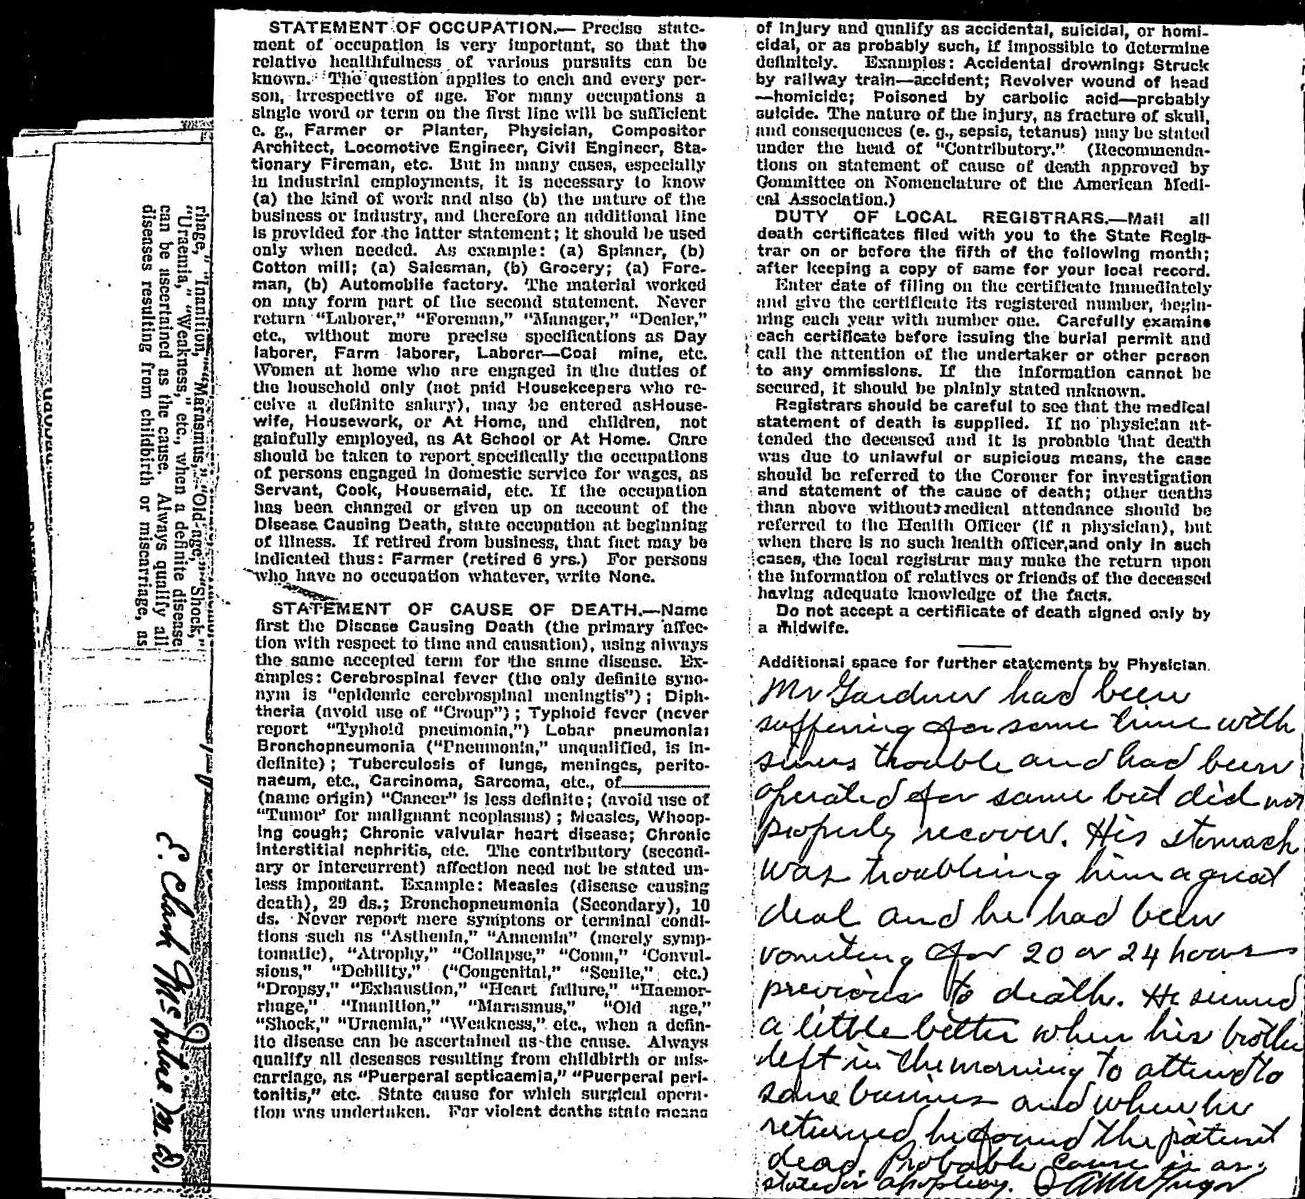 STATEMENT OF OCCUPATION.— Precise state-
ment of occupation is very important, so that the
relative healthfulness of various pursuits can be
known. The question applies to each and every per-
son, irrespective of age. For many occupations a
single word or term on the first line will be sufficient
e. g., Farmer or Planter, Physician, Compositor
Architect, Locomotive Engineer, Civil Engineer, Sta-
tionary Fireman, etc. But in many cases, especially
in industrial employments, it is necessary to know
(a) the kind of work and also (b) the nature of the
business or industry, and therefore an additional line
is provided for the latter statement; it should be used
only when needed. As example: (a) Spinner, (b)
Cotton mill; (a) Salesman, (b) Grocery; (a) Fore-
man, (b) Automobile factory. The material worked
on may form part of the second statement. Never
return "Laborer," "Foreman," "Manager," "Dealer,"
etc., without more precise specifications as Day
laborer, Farm laborer, Laborer—Coal mine, etc.
Women at home who are engaged in the duties of
the household only (not paid Housekeepers who re-
ceive a definite salary), may be entered asHouse-
wife, Housework, or At Home, and children, not
gainfully employed, as At School or At Home. Care
should be taken to report specifically the occupations
of persons engaged in domestic service for wages, as
Servant, Cook, Housemaid, etc. If the occupation
has been changed or given up on account of the
Disease Causing Death, state occupation at beginning
of illness. If retired from business, that fact may be
indicated thus: Farmer (retired 6 yrs.) For persons
who have no occupation whatever, write None.
STATEMENT OF CAUSE OF DEATH.—Name
first the Disease Causing Death (the primary affec-
tion with respect to time and causation), using always
the same accepted term for the same disease. Ex-
amples: Cerebrospinal fever (the only definite syno-
nym is "epidemic cerebrospinal meningtis"); Diph-
theria (avoid use of "Croup"); Typhoid fever (never
report "Typhoid pneumonia,") Lobar pneumonia;
Bronchopneumonia ("Pneumonia," unqualified, is in-
definite); Tuberculosis of lungs, meninges, perito-
naeum, etc., Carcinoma, Sarcoma, etc., of
(name origin) "Cancer" is less definite; (avoid use of
"Tumor' for malignant neoplasms); Measles, Whoop-
ing cough; Chronic valvular heart disease; Chronic
interstitial nephritis, etc. The contributory (second-
ary or intercurrent) affection need not be stated un-
less important. Example: Measles (disease causing
death), 29 ds.; Bronchopneumonia (Secondary), 10
ds. Never report mere symptons or terminal condi-
tions such as "Asthenia," "Anaemia" (merely symp-
tomatic), "Atrophy," "Collapse," "Coma," 'Convul-
sions," "Debility," ("Congenital," "Senile," etc.)
"Dropsy," "Exhaustion," "Heart failure," "Haemor-
rhage," "Inanition," "Marasmus," "Old age,"
"Shock," "Uraemia," "Weakness," etc., when a defin-
ite disease can be ascertained as the cause. Always
qualify all deseases resulting from childbirth or mis-
carriage, as "Puerperal septicaemia," "Puerperal peri-
tonitis," etc. State cause for which surgical opera-
tion was undertaken. For violent deaths state means
of injury and qualify as accidental, suicidal, or homi-
cidal, or as probably such, if impossible to determine
definitely. Examples: Accidental drowning; Struck
by railway train—accident; Revolver wound of head
—homicide; Poisoned by carbolic acid—probably
suicide. The nature of the injury, as fracture of skull,
and consequences (e. g., sepsis, tetanus) may be stated
under the head of "Contributory." (Recommenda-
tions on statement of cause of death approved by
Committee on Nomenclature of the American Medi-
cal Association.)
DUTY OF LOCAL REGISTRARS.—Mail all
death certificates filed with you to the State Regis-
trar on or before the fifth of the following month;
after keeping a copy of same for your local record.
Enter date of filing on the certificate immediately
and give the certificate its registered number, begin-
ning each year with number one. Carefully examine
each certificate before issuing the burial permit and
call the attention of the undertaker or other person
to any ommissions. If the information cannot be
secured, it should be plainly stated unknown.
Registrars should be careful to see that the medical
statement of death is supplied. If no physician at-
tended the deceased and it is probable that death
was due to unlawful or supicious means, the case
should be referred to the Coroner for investigation
and statement of the cause of death; other deaths
than above without medical attendance should be
referred to the Health Officer (if a physician), but
when there is no such health officer,and only in such
cases, the local registrar may make the return upon
the information of relatives or friends of the deceased
having adequate knowledge of the facts.
Do not accept a certificate of death signed only by
a midwife.
Additional space for further statements by Physician.
Mr Gardner had been
suffering for some time with
sinus trouble and had been
operated for same but did not
properly recover. His stomach
was troubling him a great
deal and he had been
vomiting for 20 or 24 hours
previous to death. He seemed
a little better when his brother
left in the morning to attend to
some business and when he
returned he found the patient
dead. Probable cause is as
stated in apoplexy.
rhage," "Inanition," "Marasmus," "Old age," "Shock,"
"Uraemia," "Weakness," etc., when a definite disease
can be ascertained as the cause. Always qualify all
diseases resulting from childbirth or miscarriage, as
E. Clark McIntire M.D.